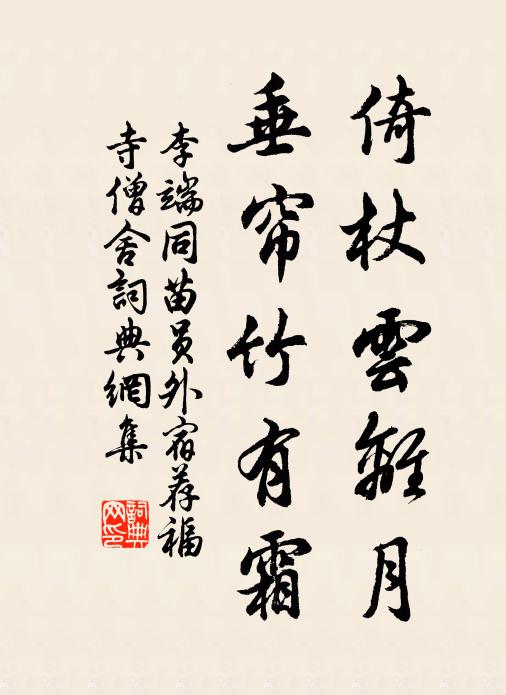 倚杖雲離月
垂帘竹有霜
李端同苗员外宿荐福
寺僧舍詞典網集
詞典
网印